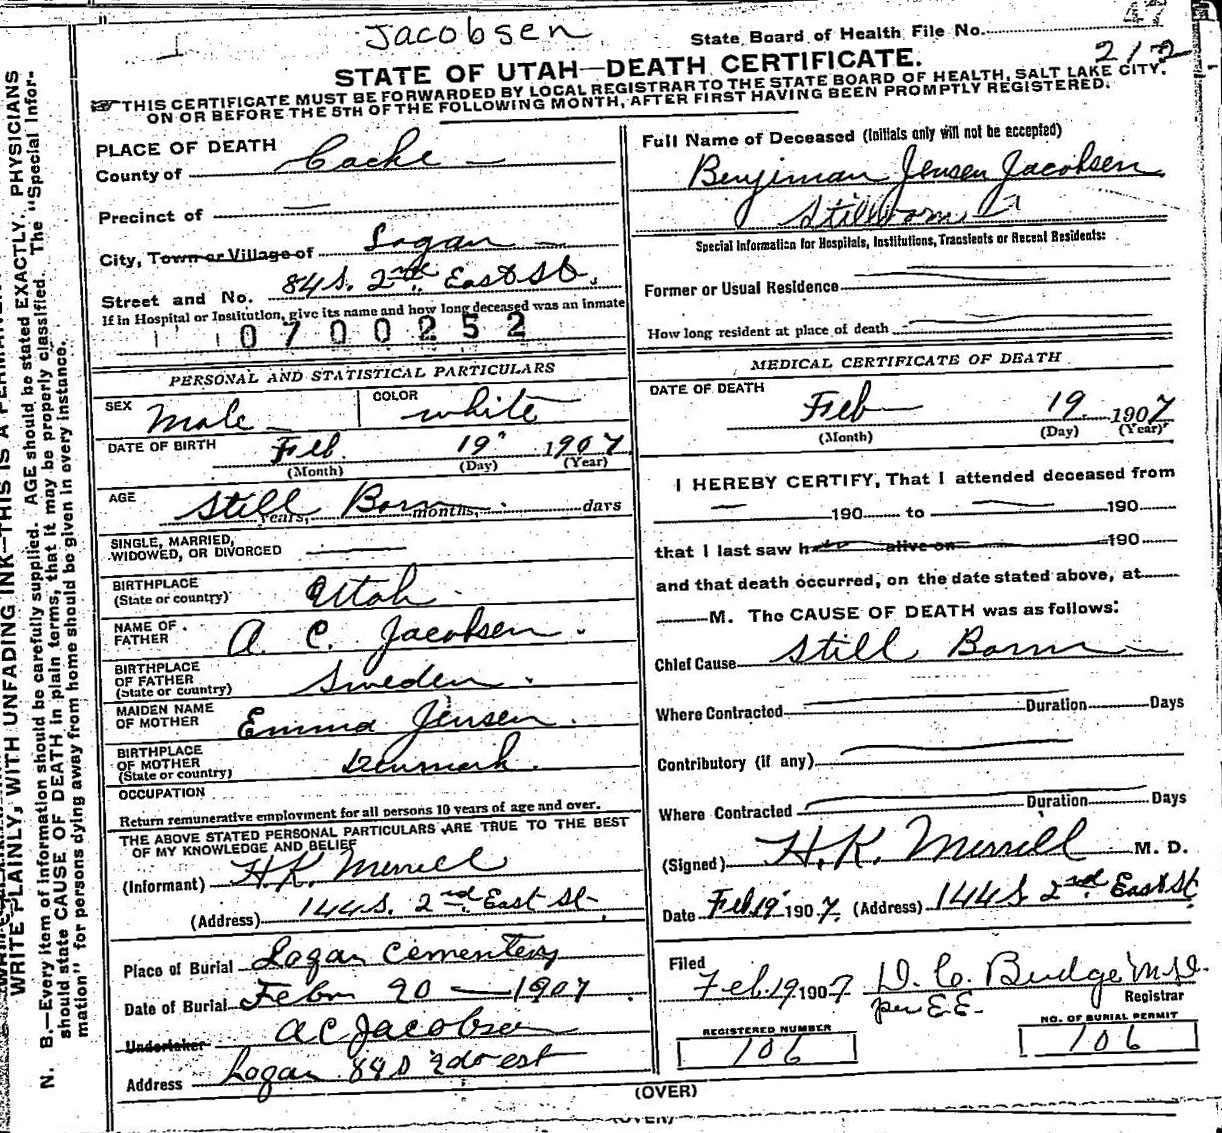 Jacobsen
State Board of Health File No.
212
STATE OF UTAH—DEATH CERTIFICATE.
THIS CERTIFICATE MUST BE FORWARDED BY LOCAL REGISTRAR TO THE STATE BOARD OF HEALTH, SALT LAKE CITY.
ON OR BEFORE THE 5TH OF THE FOLLOWING MONTH, AFTER FIRST HAVING BEEN PROMPTLY REGISTERED.
WRITE PLAINLY, WITH UNFADING INK—THIS IS A
N. B.—Every item of information should be carefully supplied. AGE should be stated EXACTLY. PHYSICIANS
should state CAUSE OF DEATH in plain terms, that it may be properly classified. The "Special Infor-
mation" for persons dying away from home should be given in every instance.
PLACE OF DEATH
County of Cache
Precinct of —
City, Town or Village of Logan
Street and No. 84 S. 2nd East St.
If in Hospital or Institution, give its name and how long deceased was an inmate
0700252
PERSONAL AND STATISTICAL PARTICULARS
SEX Male
COLOR White
DATE OF BIRTH Feb. 19 1907
(Month) (Day) (Year)
AGE Still Born
years, months, days
SINGLE, MARRIED,
WIDOWED, OR DIVORCED —
BIRTHPLACE
(State or country) Utah
NAME OF
FATHER A. C. Jacobsen.
BIRTHPLACE
OF FATHER
(State or country) Sweden.
MAIDEN NAME
OF MOTHER Emma Jensen.
BIRTHPLACE
OF MOTHER
(State or country) Denmark.
OCCUPATION
Return remunerative employment for all persons 10 years of age and over.
THE ABOVE STATED PERSONAL PARTICULARS ARE TRUE TO THE BEST
OF MY KNOWLEDGE AND BELIEF
(Informant) H.K. Merrill
(Address) 144 S. 2nd East St.
Place of Burial Logan Cementery
Date of Burial Febr 20 — 1907
Undertaker A C Jacobsen
Address Logan 84 S 2d est
Full Name of Deceased (Initials only will not be accepted)
Benjiman Jensen Jacobsen
Stillborn
Special Information for Hospitals, Institutions, Transients or Recent Residents:
Former or Usual Residence —
How long resident at place of death —
MEDICAL CERTIFICATE OF DEATH
DATE OF DEATH
Feb 19 1907
(Month) (Day) (Year)
I HEREBY CERTIFY, That I attended deceased from
— 190 to — 190
that I last saw h alive on 190
and that death occurred, on the date stated above, at
M. The CAUSE OF DEATH was as follows:
Chief Cause Still Born
Where Contracted Duration Days
Contributory (if any)
Where Contracted Duration Days
(Signed) H. K. Merrill M. D.
Date Feb. 19 1907. (Address) 144 S 2nd East St
Filed
Feb. 19 1907 D. C. Budge M.D.
per E.E. Registrar
REGISTERED NUMBER
106
NO. OF BURIAL PERMIT
106
(OVER)